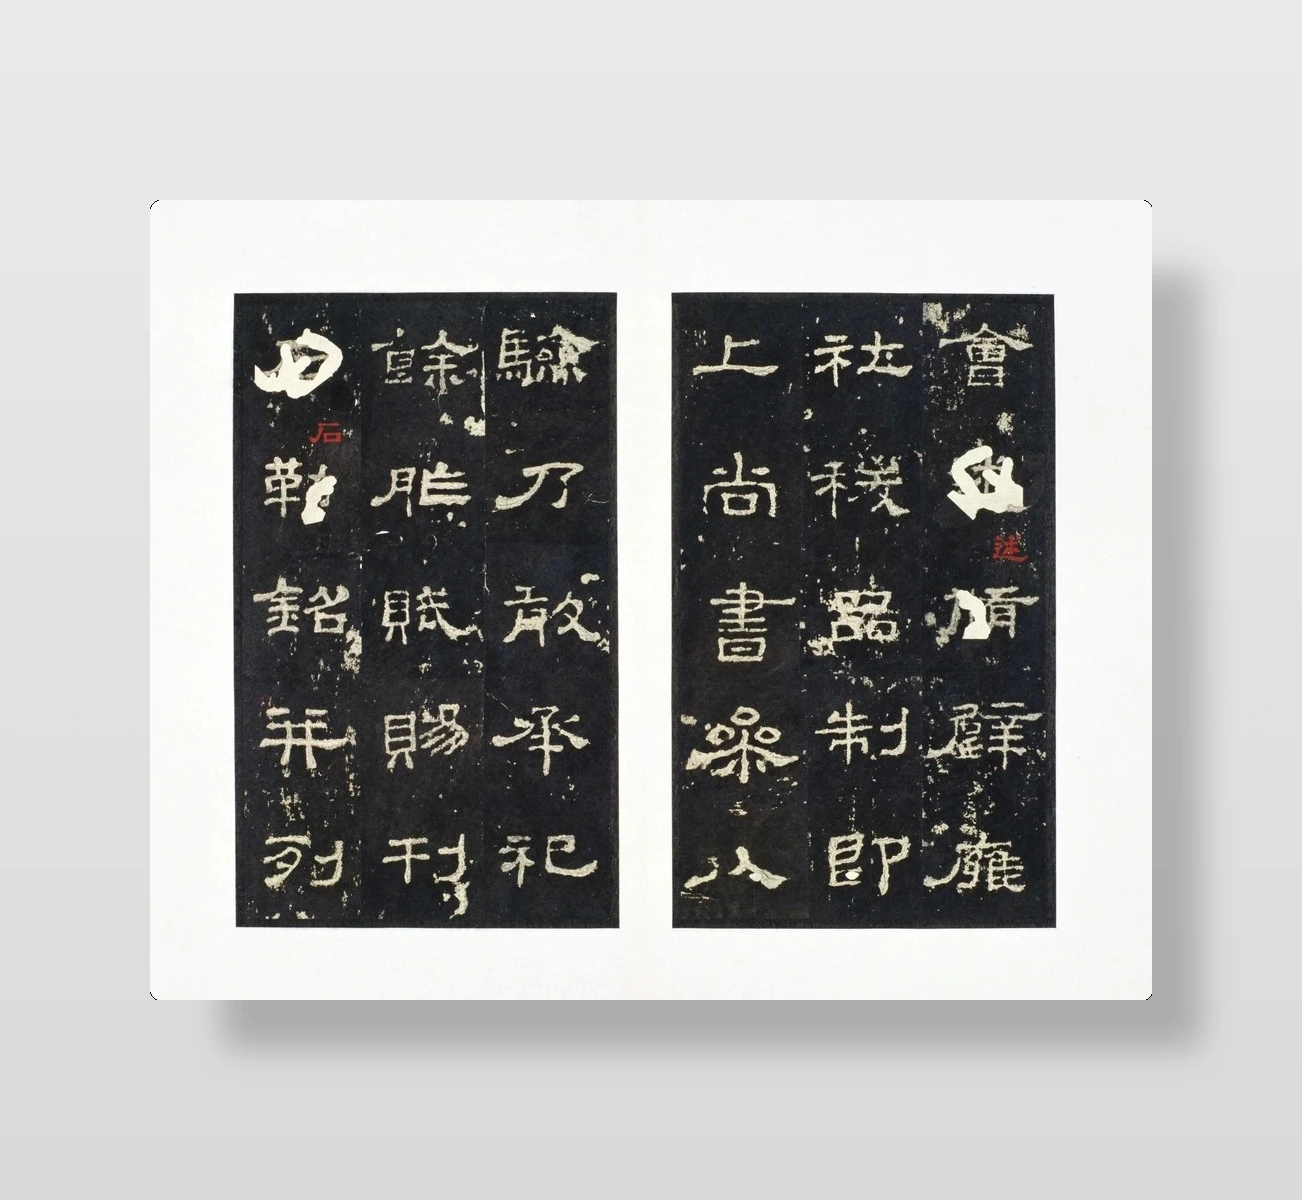 會述脩辟廱
社稷品制即
上尚書參以
驗乃敢承祀
餘胙賦賜刊
石勒銘并列